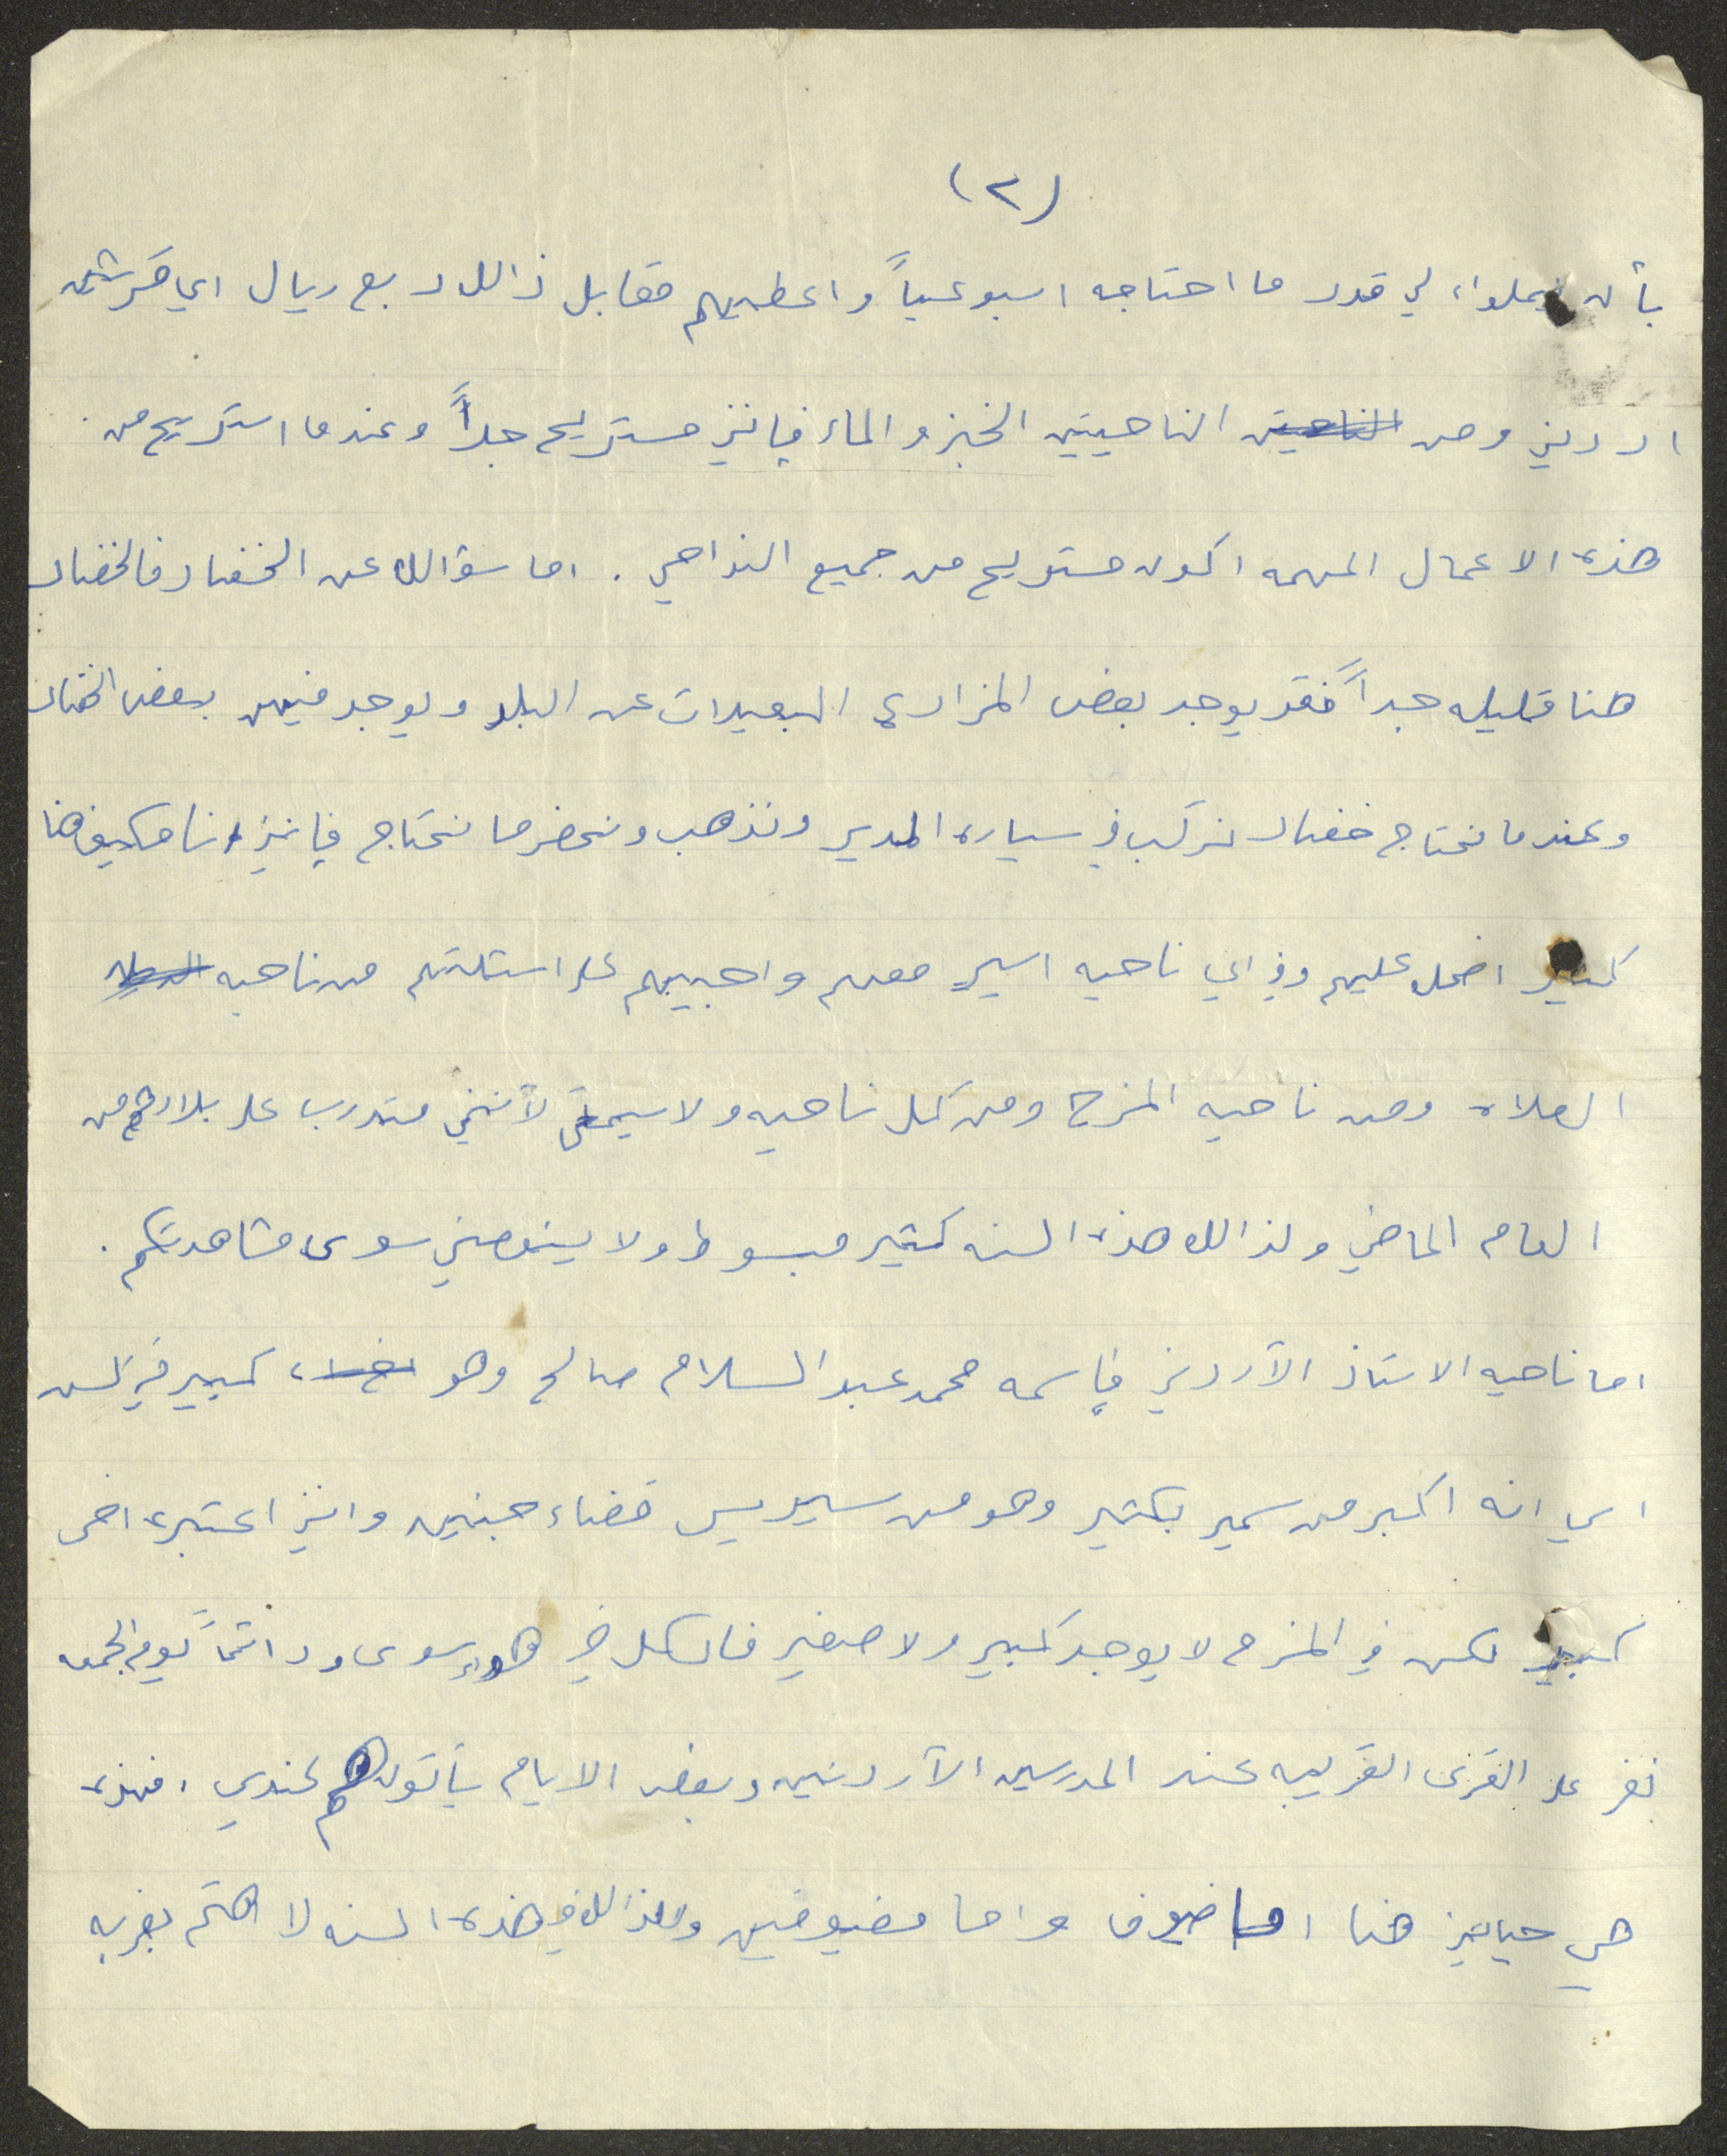 (٢)
بأن يملواء لي قدر ما احتاجه اسبوعياً واعطيهم مقابل ذالك ربع ريال اي قرشين
اردني ومن الناحيتين الناحيتين الخبز والماء فإنني مستريح جداً وعندما استريح من
هذه الاعمال المهمه اكون مستريح من جميع النواحي . اما سؤالك عن الخضار فالخضار
هنا قليله جداً فقد يوجد بعض المزارع البعيدات عن البلد ويوجد فيهن بعض الخضار
وعندما نحتاج خضار نركب في سيارة المدير ونذهب ونحضر ما نحتاج فإنني انا مكيف هنا
كثير اضحك عليهم وفي اي ناحيه اسير معهم واجيبهم على اسئلتهم من ناحيه
الصلاه ومن ناحيه المزح ومن كل ناحيه ولا سيما لأنني متدرب على بلادهم من
العام الماضي ولذالك هذه السنه كثير مبسوط ولا ينقصني سوى مشاهدتكم .
اما ناحيه الاستاذ الأردني فإسمه محمد عبد السلام صالح وهو كبير في السن
اي انه اكبر من سمير بكثير وهو من سيريس قضاء جنين وانني اعتبره اخي
كبير لكن في المزح لا يوجد كبير ولا صغير فالكل في سوى ودائماً يوم الجمعه
نفر على القرى القريبه عند المدرسين الأردنيين وبعض الايام يأتون هم عندي . فهذه
هي حياتي هنا اما ضيوف واما مضيوفين ولذالك في هذه السنه لا اهتم بغربه